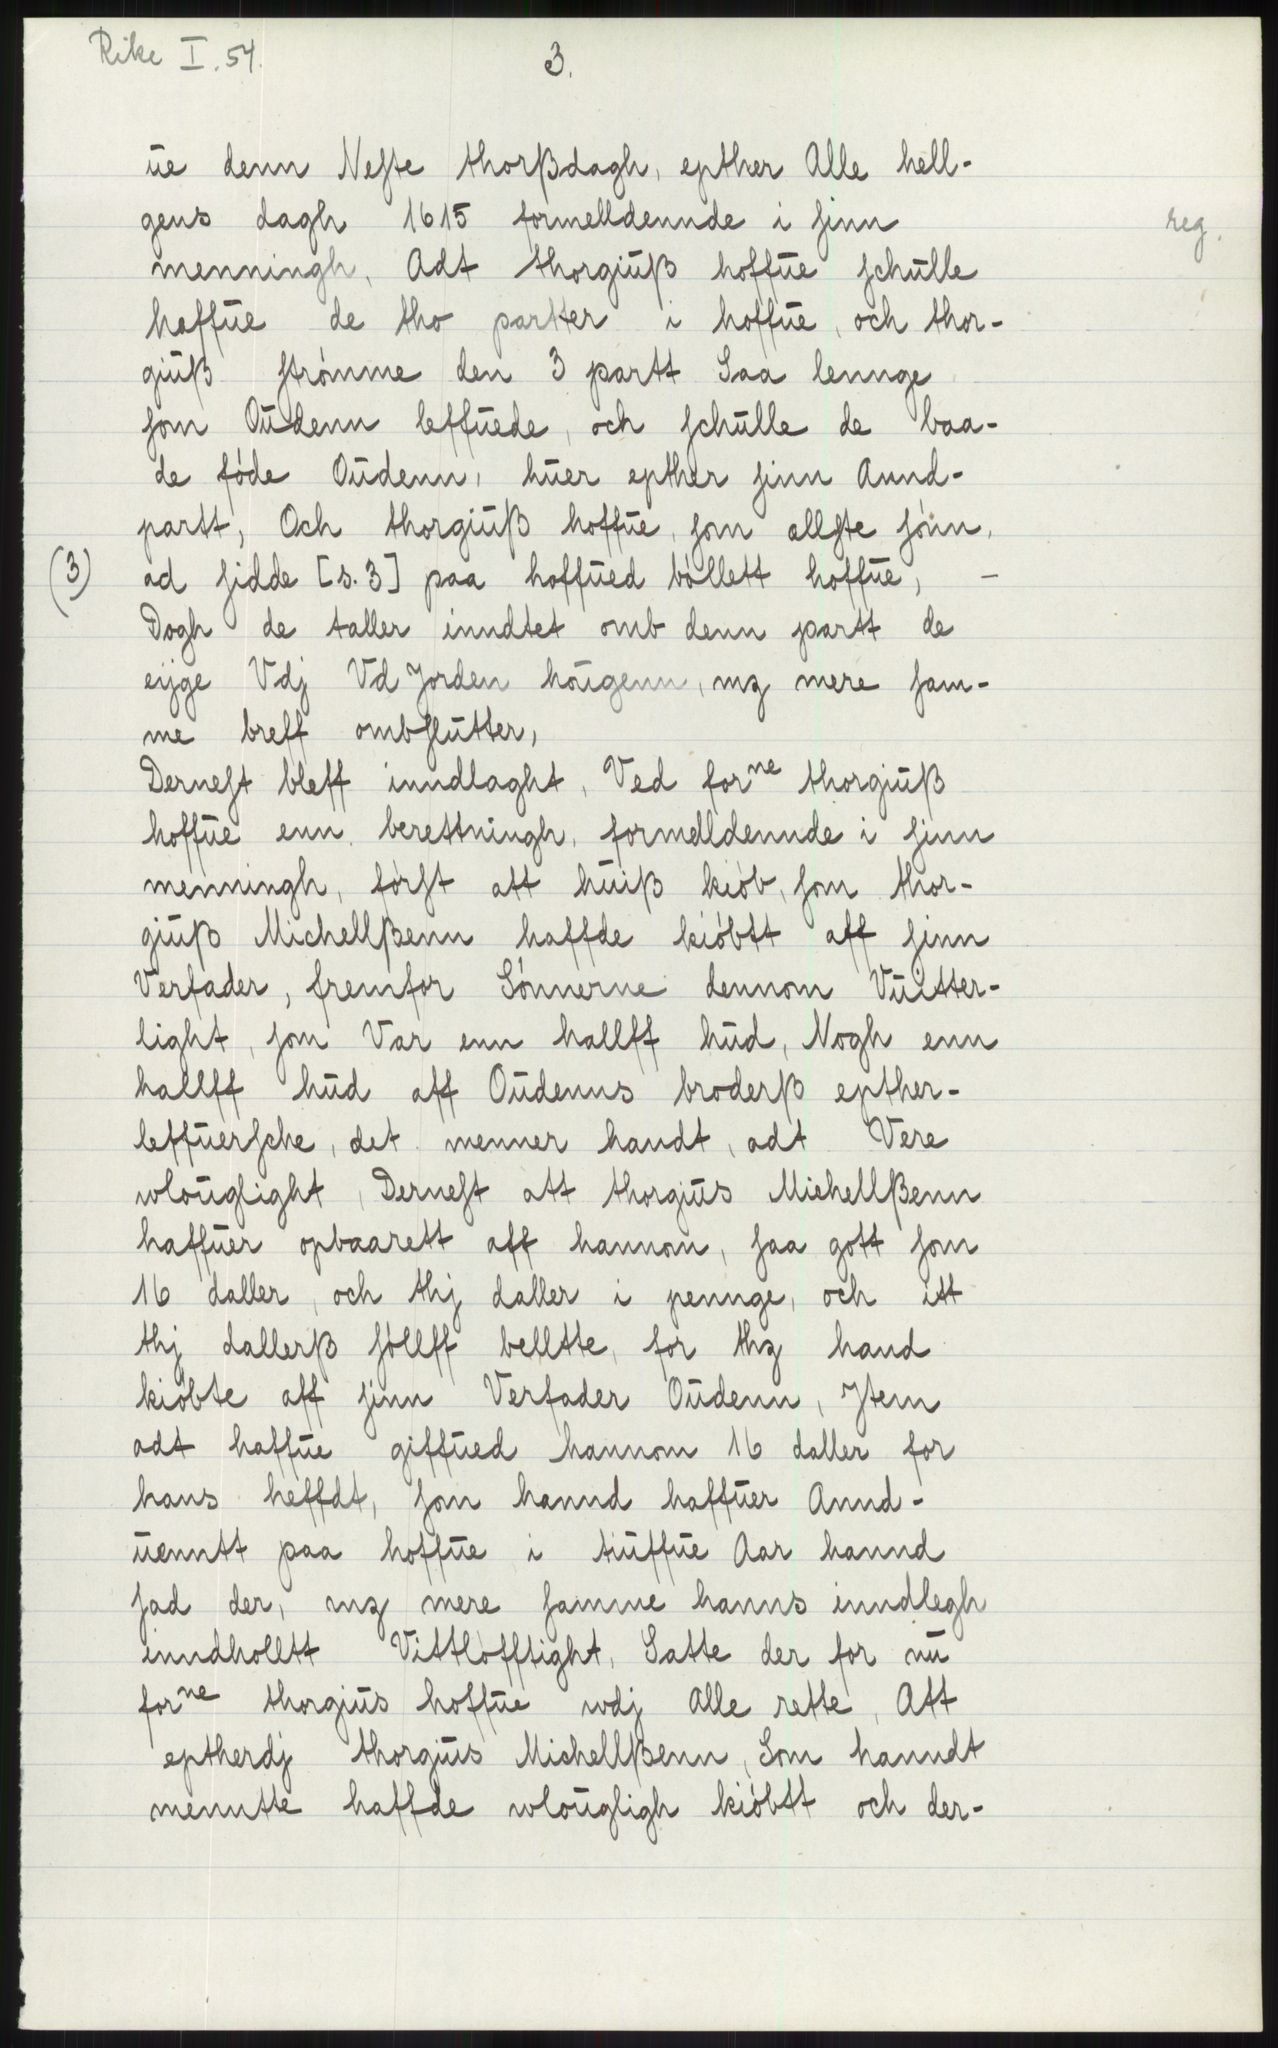 Rike I. 54.
3.
ue denn Neste thorßdagh, epther Alle hell-
gens dagh 1615 formelldennde i sinn
reg.
menningh, Adt thorgiuß hoffue schulle
haffue de tho parter i hoffue, och thor-
giuß strømme den 3 partt Saa lennge
som Oudenn leffuede, och schulle de baa-
de føde Oudenn, huer epther sinn Annd-
partt, Och thorgiuß hoffue, som ellste sønn,
(3) ad sidde [s. 3] paa hoffued bøllett hoffue, -
Dogh de taller inndtet omb denn partt de
eijge Vdj Vd Jorden hougenn, mz mere sam-
me breff ombslutter,
Dernest bleff inndlaght, Ved forne thorgiuß
hoffue enn berettningh, formelldennde i sinn
menningh, først att huiß kiøb, som thor-
giuß Michellßenn haffde kiøbtt aff sinn
Verfader, fremfor Sønnerne dennom Vuitter-
light, som Var enn hallff hud, Nogh enn
hallff hud aff Oudenns broderß epther-
leffuersche, det menner handt, adt Vere
wlouglight, Dernest att thorgius Michellßenn
haffuer opbaarett aff hannom, saa gott som
16 daller, och thj daller i pennge, och itt
thj dallerß søllff belltte, for thz hand
kiøbte aff sinn Verfader Oudenn, Jtem
adt haffue giffued hannom 16 daller for
hans heffdt, som hannd haffuer Annd-
uenntt paa hoffue i tiuffue Aar hannd
sad der, mz mere samme hanns inndlegh
inndhølltt Vittløfftight, Satte der for nu
forne thorgius hoffue wdj Alle rette, Att
eptherdj thorgius Michellßenn, Som hanndt
menntte haffde wlougligh kiøbtt och der-